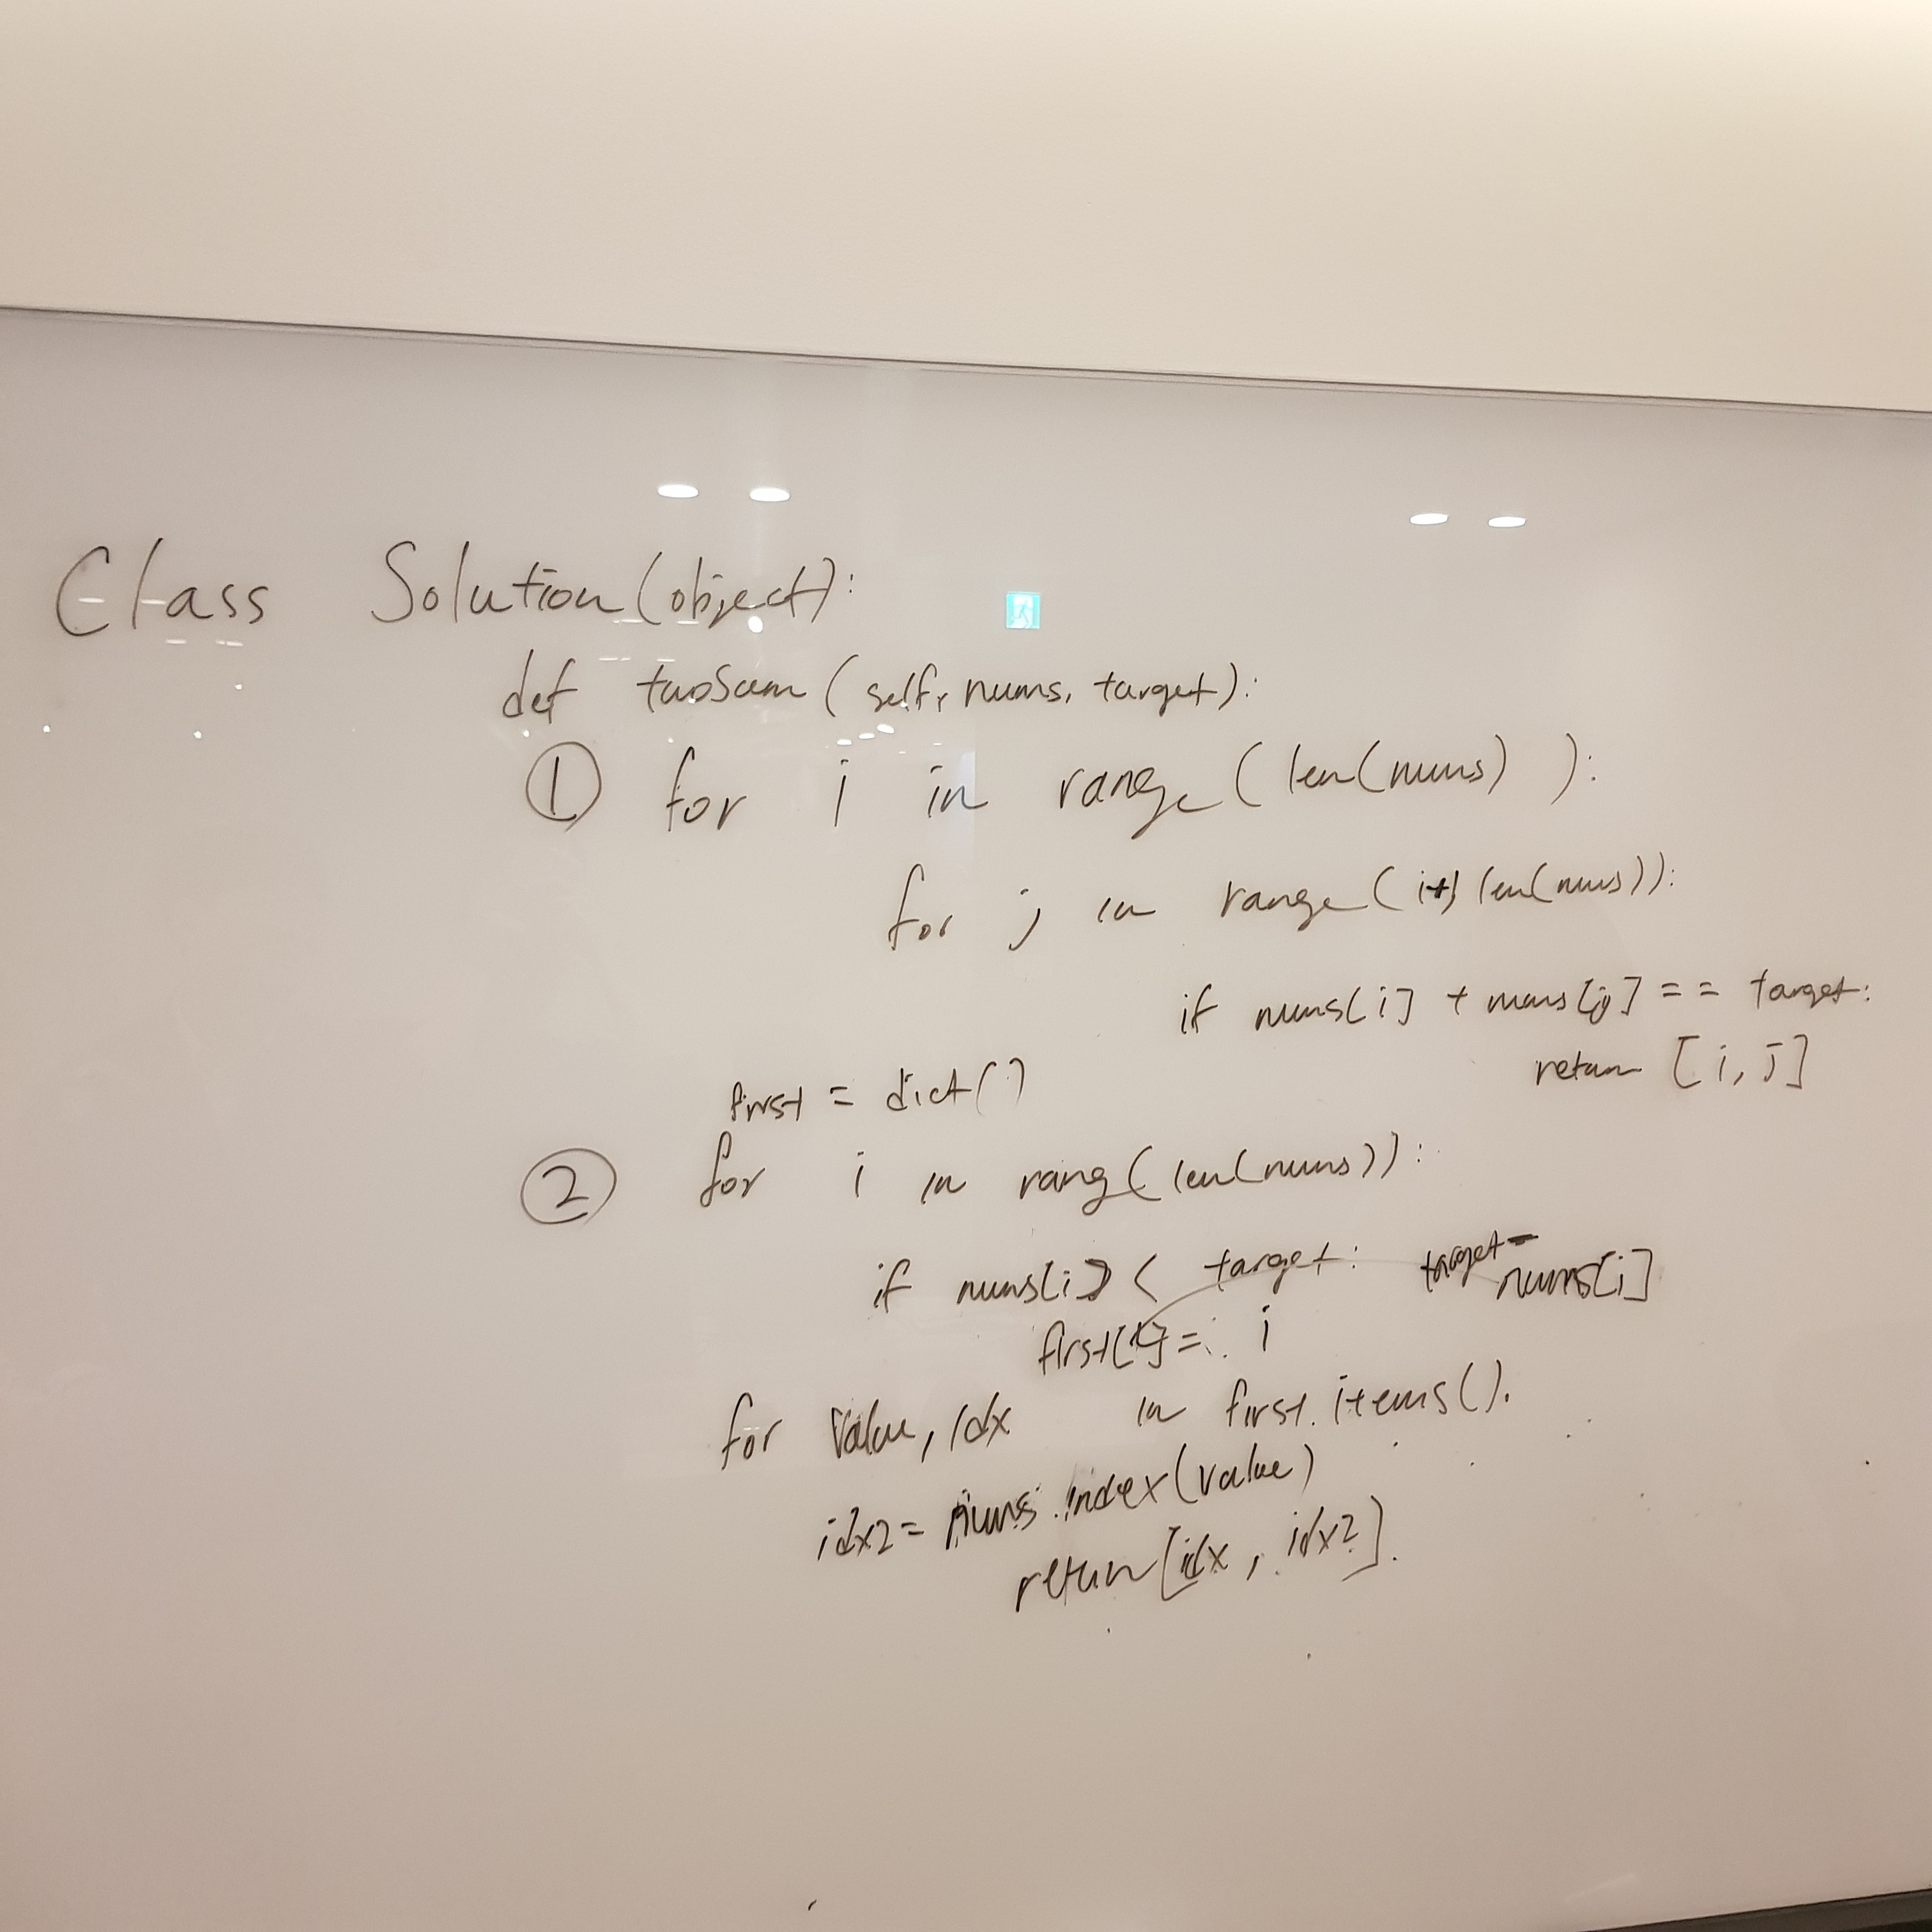 Class Solution(object):
def twoSum(self, nums, target):
① for i in range(len(nums)):
for j in range(i+1 len(nums)):
if nums[i] + nums[j] == target:
return [i, j]
first = dict()
② for i in rang(len(nums)):
if nums[i] < target: target-nums[i]
first[ ] = i
for value, idx in first.items().
idx2 = nums.index(value)
return [idx, idx2].